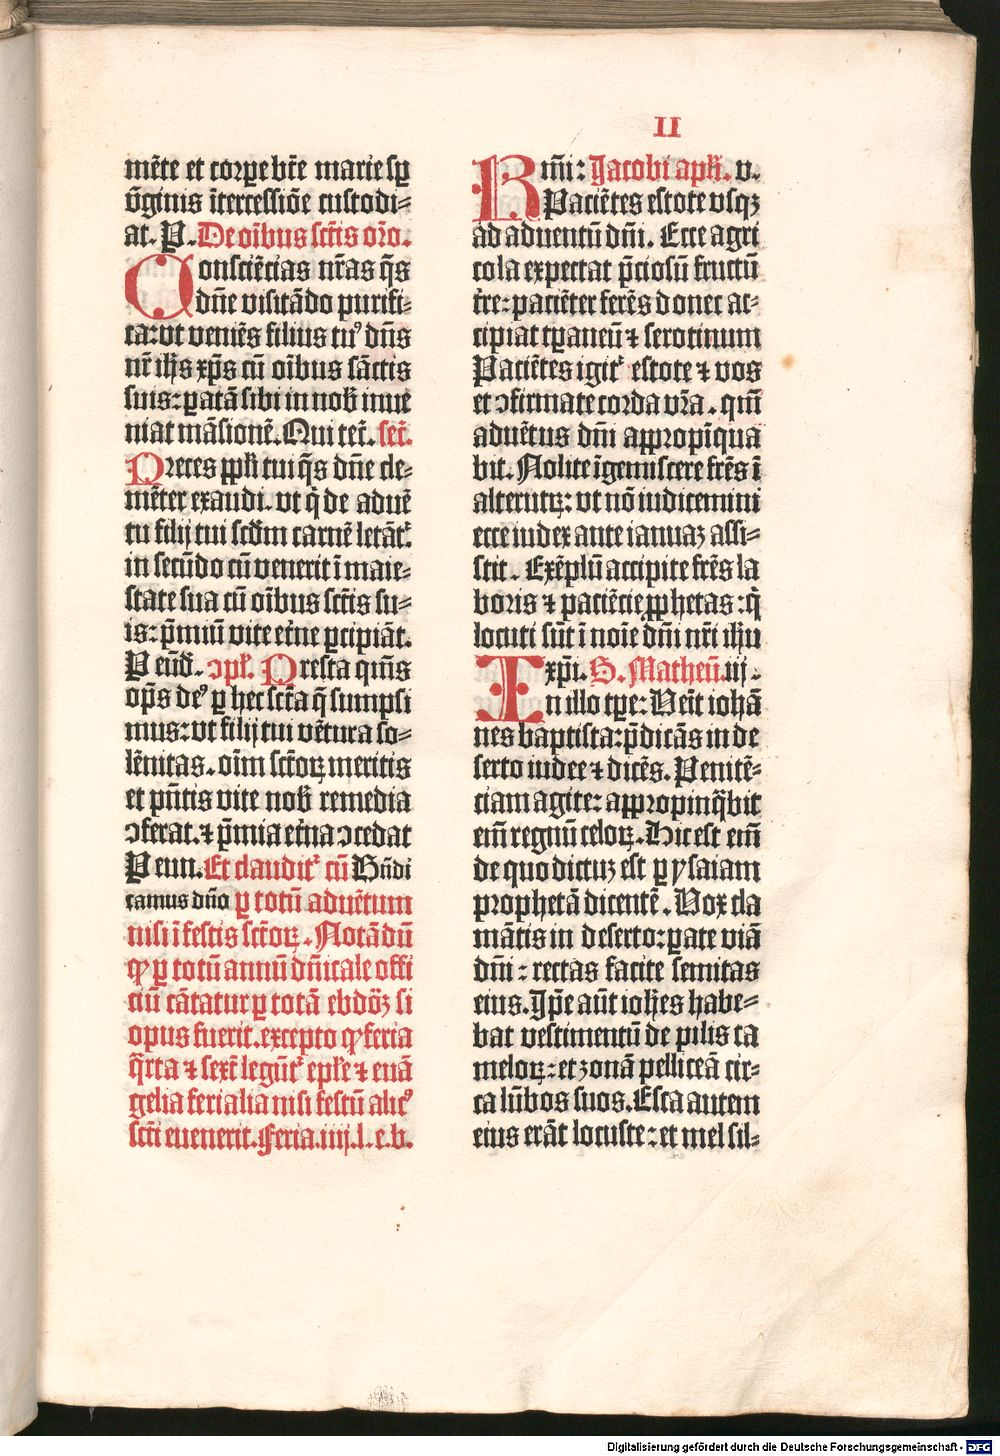 II
mēte et corꝑe btē marie sꝑ
v̄ginis ītercessiōe custodi⸗
at. P. De oībus sctīs oro.
Consciēcias nr̄as q̄s
dn̄e visitādo purifi⸗
ca: vt veniēs filius tuꝰ dn̄s
nr̄ ihs̄ xp̄s cū oībus sāctis
suis: ꝑatā sibi in nob̄ inue
niat māsionē. Qui tec̄. sec̄.
Preces ppl̄i tui q̄s dn̄e cle⸗
mēter exaudi. vt q̄ de aduē
tu filij tui scd̄m carnē letāt᷑
in secūdo cū venerit ī maie⸗
state sua cū oībus sctīs su⸗
is: p̄miū vite etīne ꝑcipiāt.
P eūd̄. ↄpl̄. Presta qm̄s
opš deꝰ ꝑ hec sctā q̄ sumpsi
mus: vt filij tui vētura so⸗
lēnitas. oīm sctōꝝ meritis
et pn̄tis vite nob̄ remedia
ↄferat. ⁊ p̄mia etīna ↄcedat
P eun. Et claudit᷑ cū Bn̄di
camus dn̄o ꝑ totū aduētum
nisi ī festis sctōꝝ. Notādū
ꝙ ꝑ totū annū dn̄icale offi
ciū cātatur ꝑ totā ebdōꝫ si
opus fuerit. excepto ꝙ feria
q̄rta ⁊ sext̄ legūt᷑ epl̄e ⁊ euā
gelia ferialia nisi festū alicꝰ
sctī euenerit. Feria. iiij. l. e. b.
Rm̄i: Jacobi apl̄i. v.
Paciētes estote vsqꝫ
ad aduentū dn̄i. Ecce agri
cola expectat p̄ciosū fructū
tr̄e: paciēter ferēs donec ac⸗
cipiat tꝑaneū ⁊ serotinum
Paciētes igit᷑ estote ⁊ vos
et ↄfirmate corda vr̄a. qm̄
aduētus dn̄i appropīqua
bit. Nolite īgemiscere frēs ī
alterutꝝ: vt nō iudicemini
ecce iudex ante ianuaꝫ assi⸗
stit. Exēplū accipite frēs la
boris ⁊ paciēcie ꝓphetas: q̄
locuti sūt ī noīe dn̄i nr̄i ihū
xp̄i. S. Matheū. iij.
In illo tꝑe: Veīt iohā
nes baptista: p̄dicās in de
serto iudee ⁊ dicēs. Penitē⸗
ciam agite: appropinq̄bit
em̄ regnū celoꝝ. Hic est em̄
de quo dictuꝫ est ꝑ ysaiam
prophetā dicentē. Vox cla
mātis in deserto: ꝑate viā
dn̄i: rectas facite semitas
eius. Ip̄e aūt iohēs habe⸗
bat vestimentū de pilis ca
meloꝝ: et zonā pelliceā cir⸗
ca lūbos suos. Esca autem
eius erāt locuste: et mel sil⸗
Digitalisierung gefördert durch die Deutsche Forschungsgemeinschaft - DFG